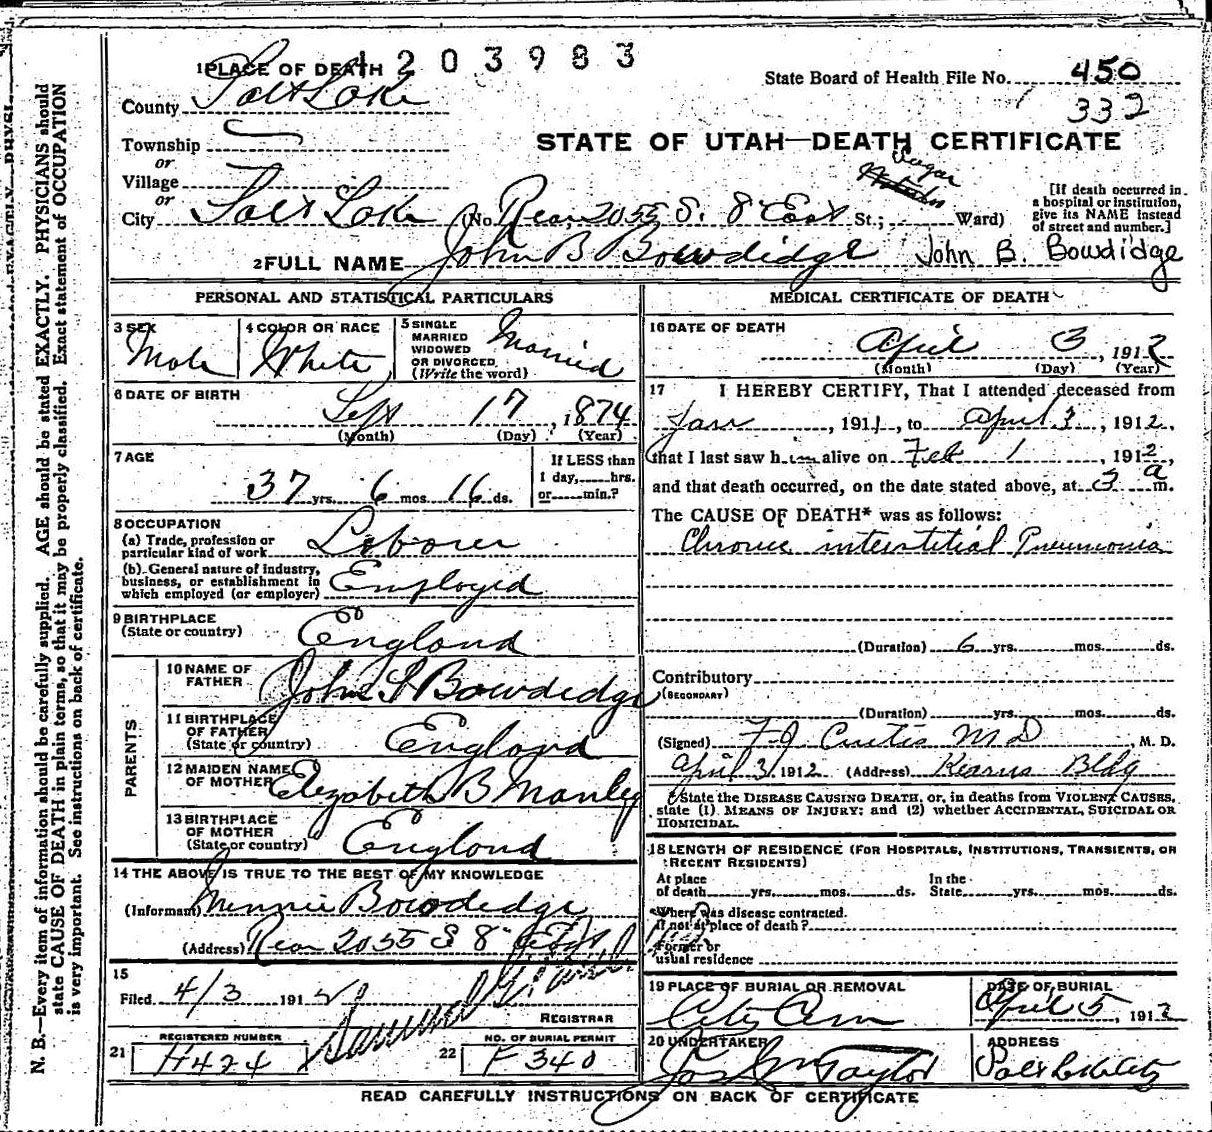 4203983
1 PLACE OF DEATH
State Board of Health File No. 450
332
County Salt Lake
STATE OF UTAH—DEATH CERTIFICATE
Township
or
Village
or
City Salt Lake (No. Rear 2055 S. 8 East St.; Sugar Ward)
[If death occurred in a hospital or institution, give its NAME instead of street and number.]
2 FULL NAME John B Bowdidge John B. Bowdidge
PERSONAL AND STATISTICAL PARTICULARS
3 SEX Male
4 COLOR OR RACE White
5 SINGLE MARRIED WIDOWED OR DIVORCED (Write the word) Married
6 DATE OF BIRTH
Sept 17, 1874
(Month) (Day) (Year)
7 AGE
37 yrs. 6 mos. 16 ds.
If LESS than 1 day, hrs. or min.?
8 OCCUPATION
(a) Trade, profession or particular kind of work Laborer
(b) General nature of industry, business, or establishment in which employed (or employer) Employed
9 BIRTHPLACE (State or country) England
PARENTS
10 NAME OF FATHER John S Bowdidge
11 BIRTHPLACE OF FATHER (State or country) England
12 MAIDEN NAME OF MOTHER Elizabeth B Manley
13 BIRTHPLACE OF MOTHER (State or country) England
14 THE ABOVE IS TRUE TO THE BEST OF MY KNOWLEDGE
(Informant) Minnie Bowdidge
(Address) Rear 2055 S 8 East
15
Filed 4/3 1912
REGISTRAR
21 REGISTERED NUMBER H424
22 NO. OF BURIAL PERMIT F 340
MEDICAL CERTIFICATE OF DEATH
16 DATE OF DEATH
April 3, 1912
(Month) (Day) (Year)
17 I HEREBY CERTIFY, That I attended deceased from
Jan, 1911, to April 3, 1912,
that I last saw him alive on Feb 1, 1912,
and that death occurred, on the date stated above, at 3 a m.
The CAUSE OF DEATH* was as follows:
Chronic interstitial Pneumonia
(Duration) 6 yrs. mos. ds.
Contributory
(SECONDARY)
(Duration) yrs. mos. ds.
(Signed) F J Curtis M D M. D.
April 3, 1912 (Address) Kearns Bldg
*State the DISEASE CAUSING DEATH, or, in deaths from VIOLENT CAUSES, state (1) MEANS OF INJURY; and (2) whether ACCIDENTAL, SUICIDAL OR HOMICIDAL.
18 LENGTH OF RESIDENCE (FOR HOSPITALS, INSTITUTIONS, TRANSIENTS, OR RECENT RESIDENTS)
At place of death yrs. mos. ds. In the State yrs. mos. ds.
Where was disease contracted. If not at place of death?
Former or usual residence
19 PLACE OF BURIAL OR REMOVAL City Cem
DATE OF BURIAL April 5, 1912
20 UNDERTAKER Jos Wm Taylor
ADDRESS Salt Lake City
READ CAREFULLY INSTRUCTIONS ON BACK OF CERTIFICATE
N. B.—Every item of information should be carefully supplied. AGE should be stated EXACTLY. PHYSICIANS should
state CAUSE OF DEATH in plain terms, so that it may be properly classified. Exact statement of OCCUPATION
is very important. See instructions on back of certificate.